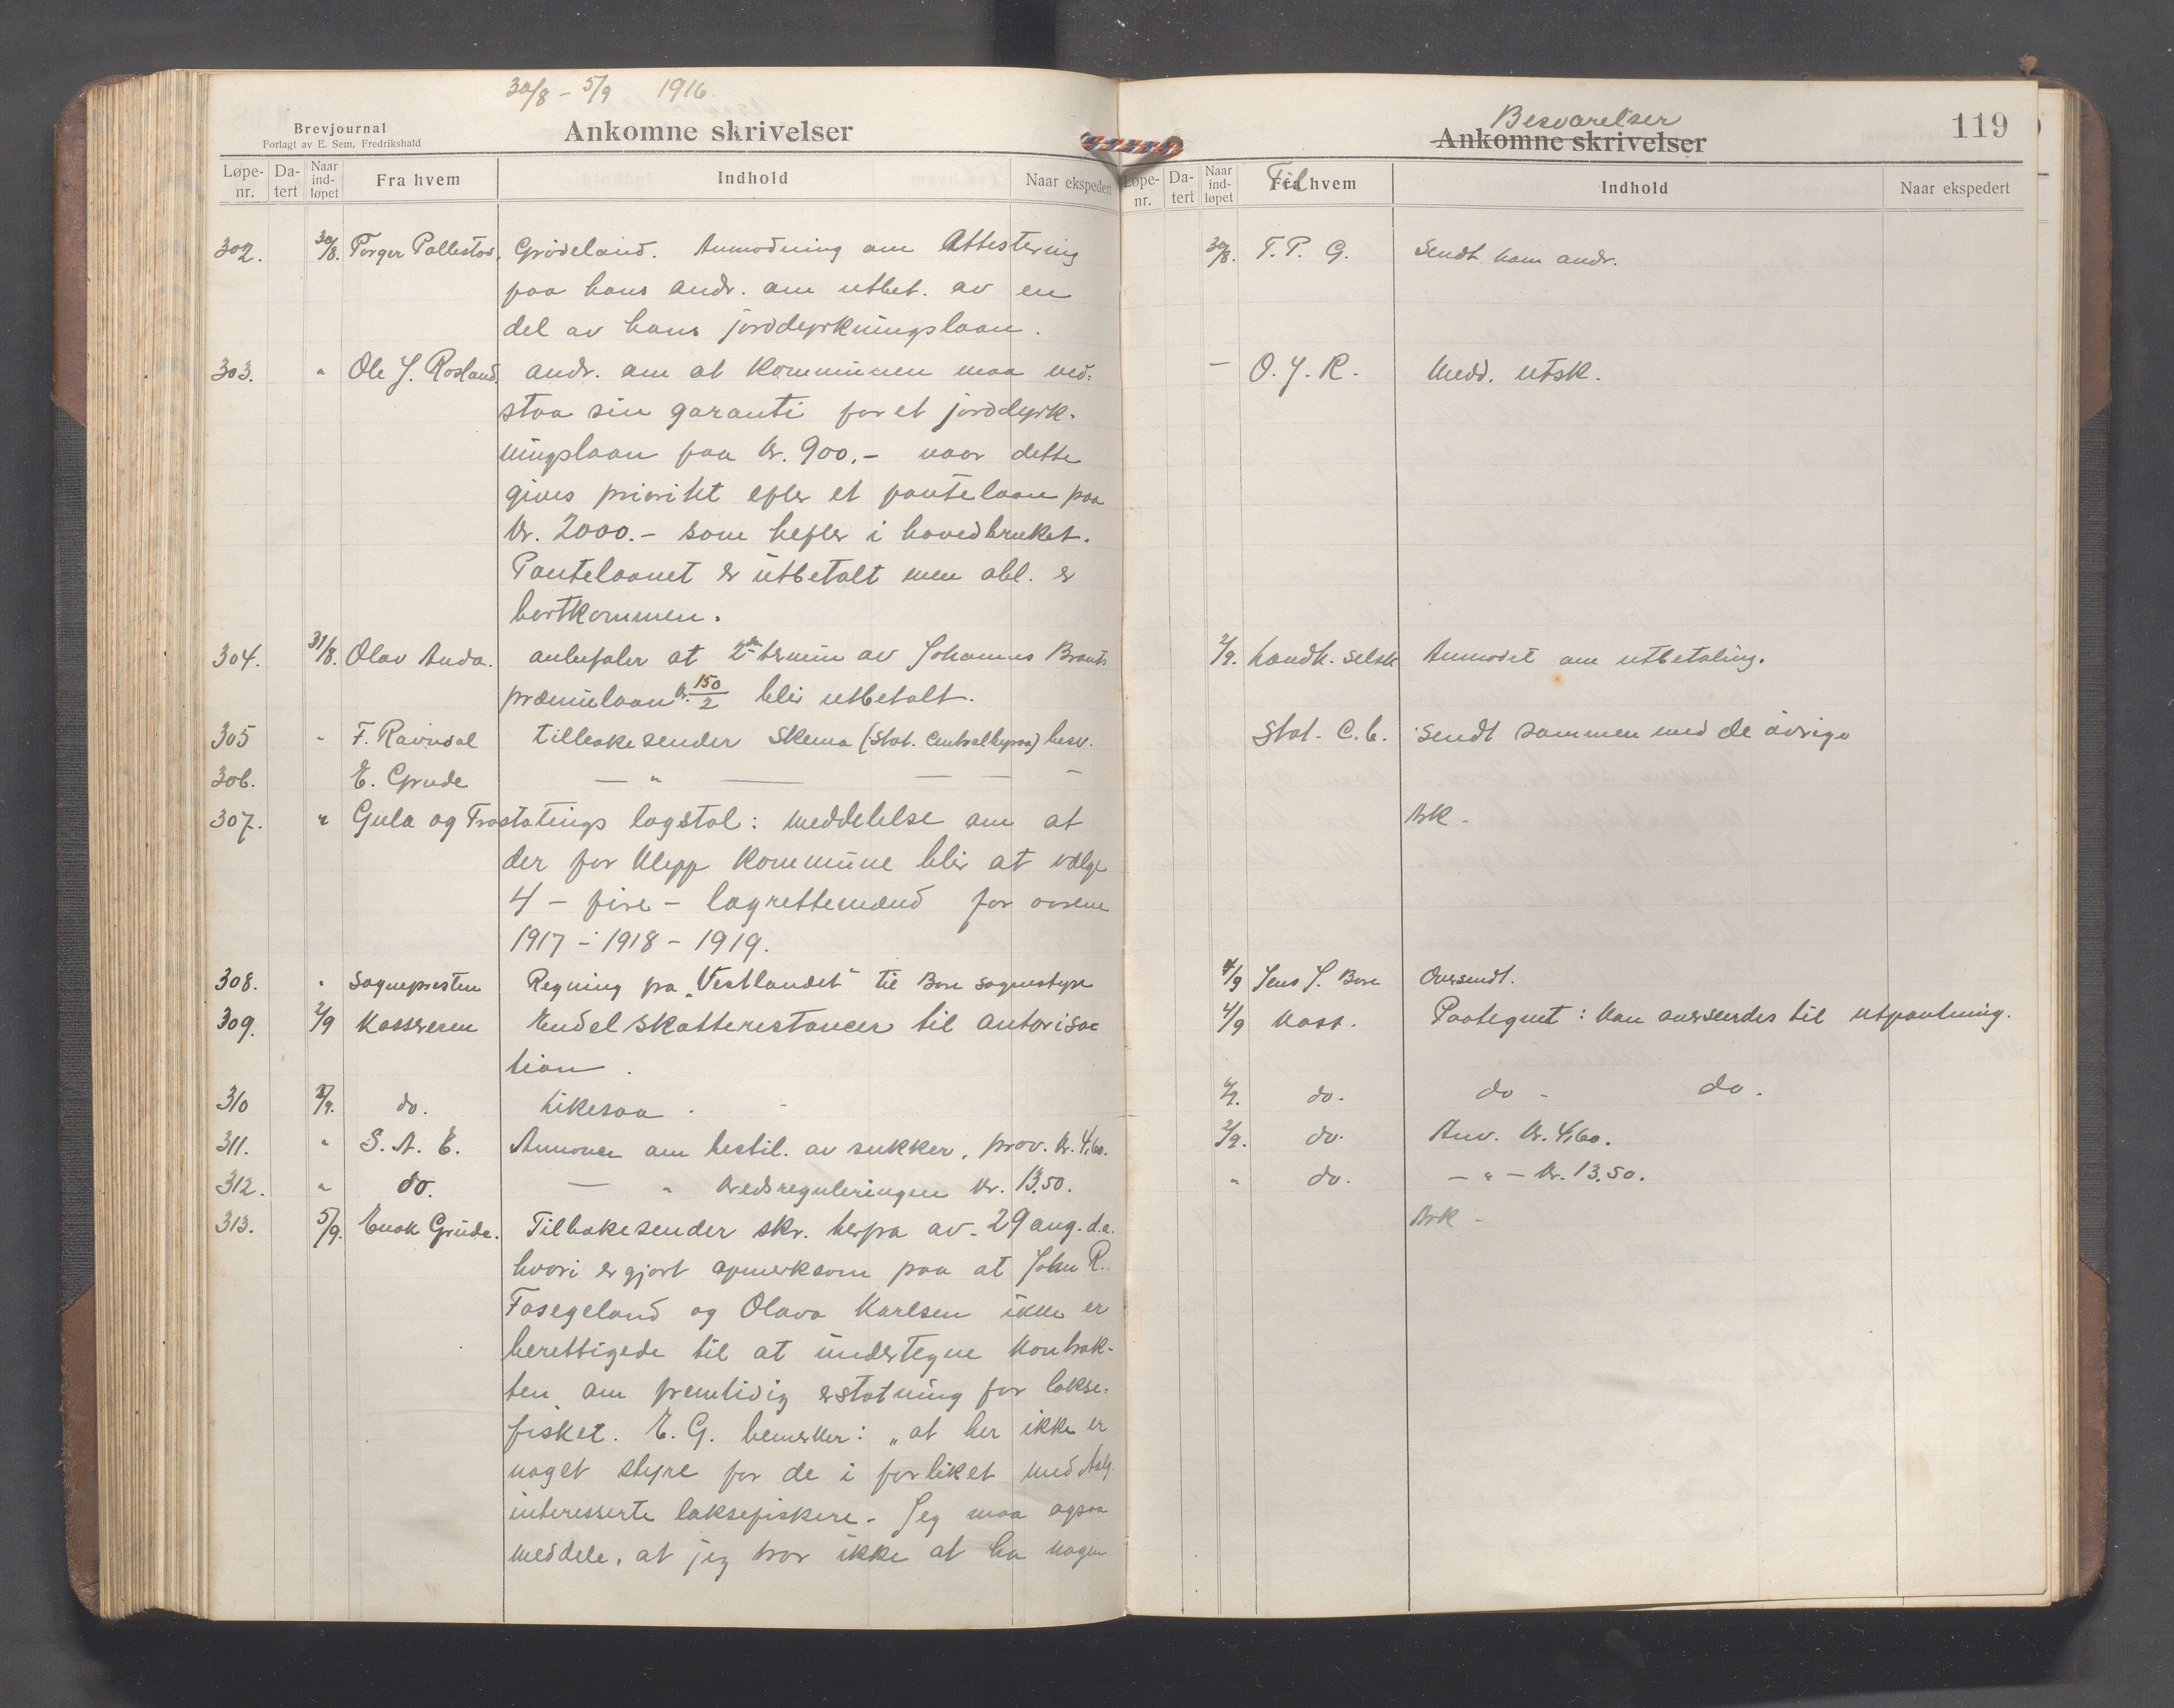 30/8 - 5/9 1916.
Brevjournal
Forlagt av E. Sem, Fredrikshald
Ankomne skrivelser
Løpe-nr. Da-tert Naar ind-løpet Fra hvem Indhold Naar ekspedert
302. 30/8. Torger Pollestad, Grødeland. Anmodning om Attestering
paa hans andr. om utbet. av en
del av hans jorddyrkningslaan.
303. " Ole J. Rosland. andr. om at kommunen maa ved-
staa sin garanti for et jorddyrk-
ningslaan paa kr. 900.- naar dette
gives prioritet efter et pantelaan paa
kr. 2000.- som hefter i hovedbruket.
Pantelaanet er utbetalt men obl. er
bortkommen.
304. 31/8. Olav Anda. anbefaler at 2den termin av Johannes Brauts
præmielaan kr. 150/2 blir utbetalt.
305 " F. Ravndal tilbakesender skema (Stat. Centralbyraa) besv.
306. E. Grude — " — — — —
307. " Gula og Frostatings lagstol: meddelelse om at
der for Klepp kommune blir at vælge
4 - fire - lagrettemænd for aarene
1917 - 1918 - 1919.
308. " Sognepresten Regning fra „Vestlandet" til Bore sognestyre
309. 2/9 Kassereren Endel skatterestancer til autorisa-
tion.
310 2/9. do. likesaa.
311. " S. A. E. Annonse om bestil. av sukker, prov. kr. 4,60.
312. " do. — " kredsreguleringen kr. 13.50.
313. 5/9. Enok Grude. Tilbakesender skr. herfra av 29 aug. d.a.
hvori er gjort opmerksom paa at John R.
Fosegeland og Olava Karlsen ikke er
berettigede til at undertegne kontrak-
ten om fremtidig erstatning for lakse-
fisket. E. G. bemerker: „at her ikke er
noget styre for de i forliket med
interesserte laksefiskere. Jeg maa ogsaa
meddele, at jeg tror ikke at ha nogen
Besvarelser
Ankomne skrivelser
119
Løpe-nr. Da-tert Naar ind-løpet Til Fra hvem Indhold Naar ekspedert
30/8. T. P. G. Sendt ham andr.
— O. J. R. Medd. utsk.
2/9. Landh. selsk Anmodet om utbetaling.
Stat. C. b. Sendt sammen med de øvrige
Ark.
4/9 Jens J. Bore Oversendt.
4/9 Kass. Paategnet: Kan oversendes til utpantning.
4/9. do. do - do.
2/9. do. Anv. kr. 4,60.
" do. - " - kr. 13.50.
Ark -